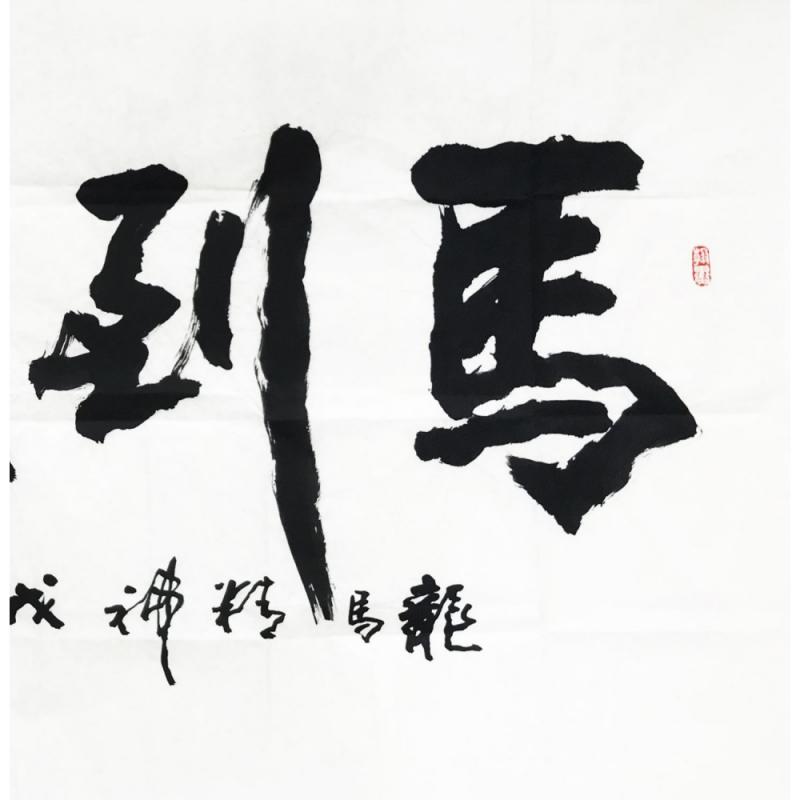 馬到
龍馬精神戊